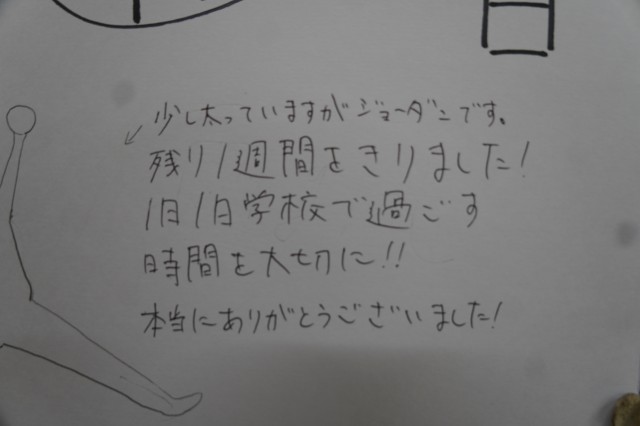 少し太っていますがジョーダンです。
残り1週間をきりました!
1日1日学校で過ごす
時間を大切に!!
本当にありがとうございました!